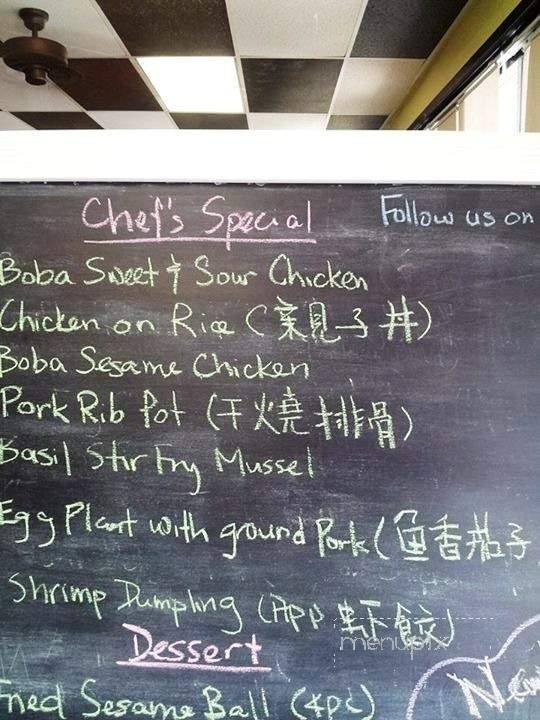 Chef's Special
Follow us on
Boba Sweet & Sour Chicken
Chicken on Rice (親子丼)
Boba Sesame Chicken
Pork Rib Pot (干燒排骨)
Basil Stir Fry Mussel
Egg Plant with ground Pork (魚香茄子
Shrimp Dumpling (App 蝦餃)
Dessert
Fried Sesame Ball (4pc)
menupix